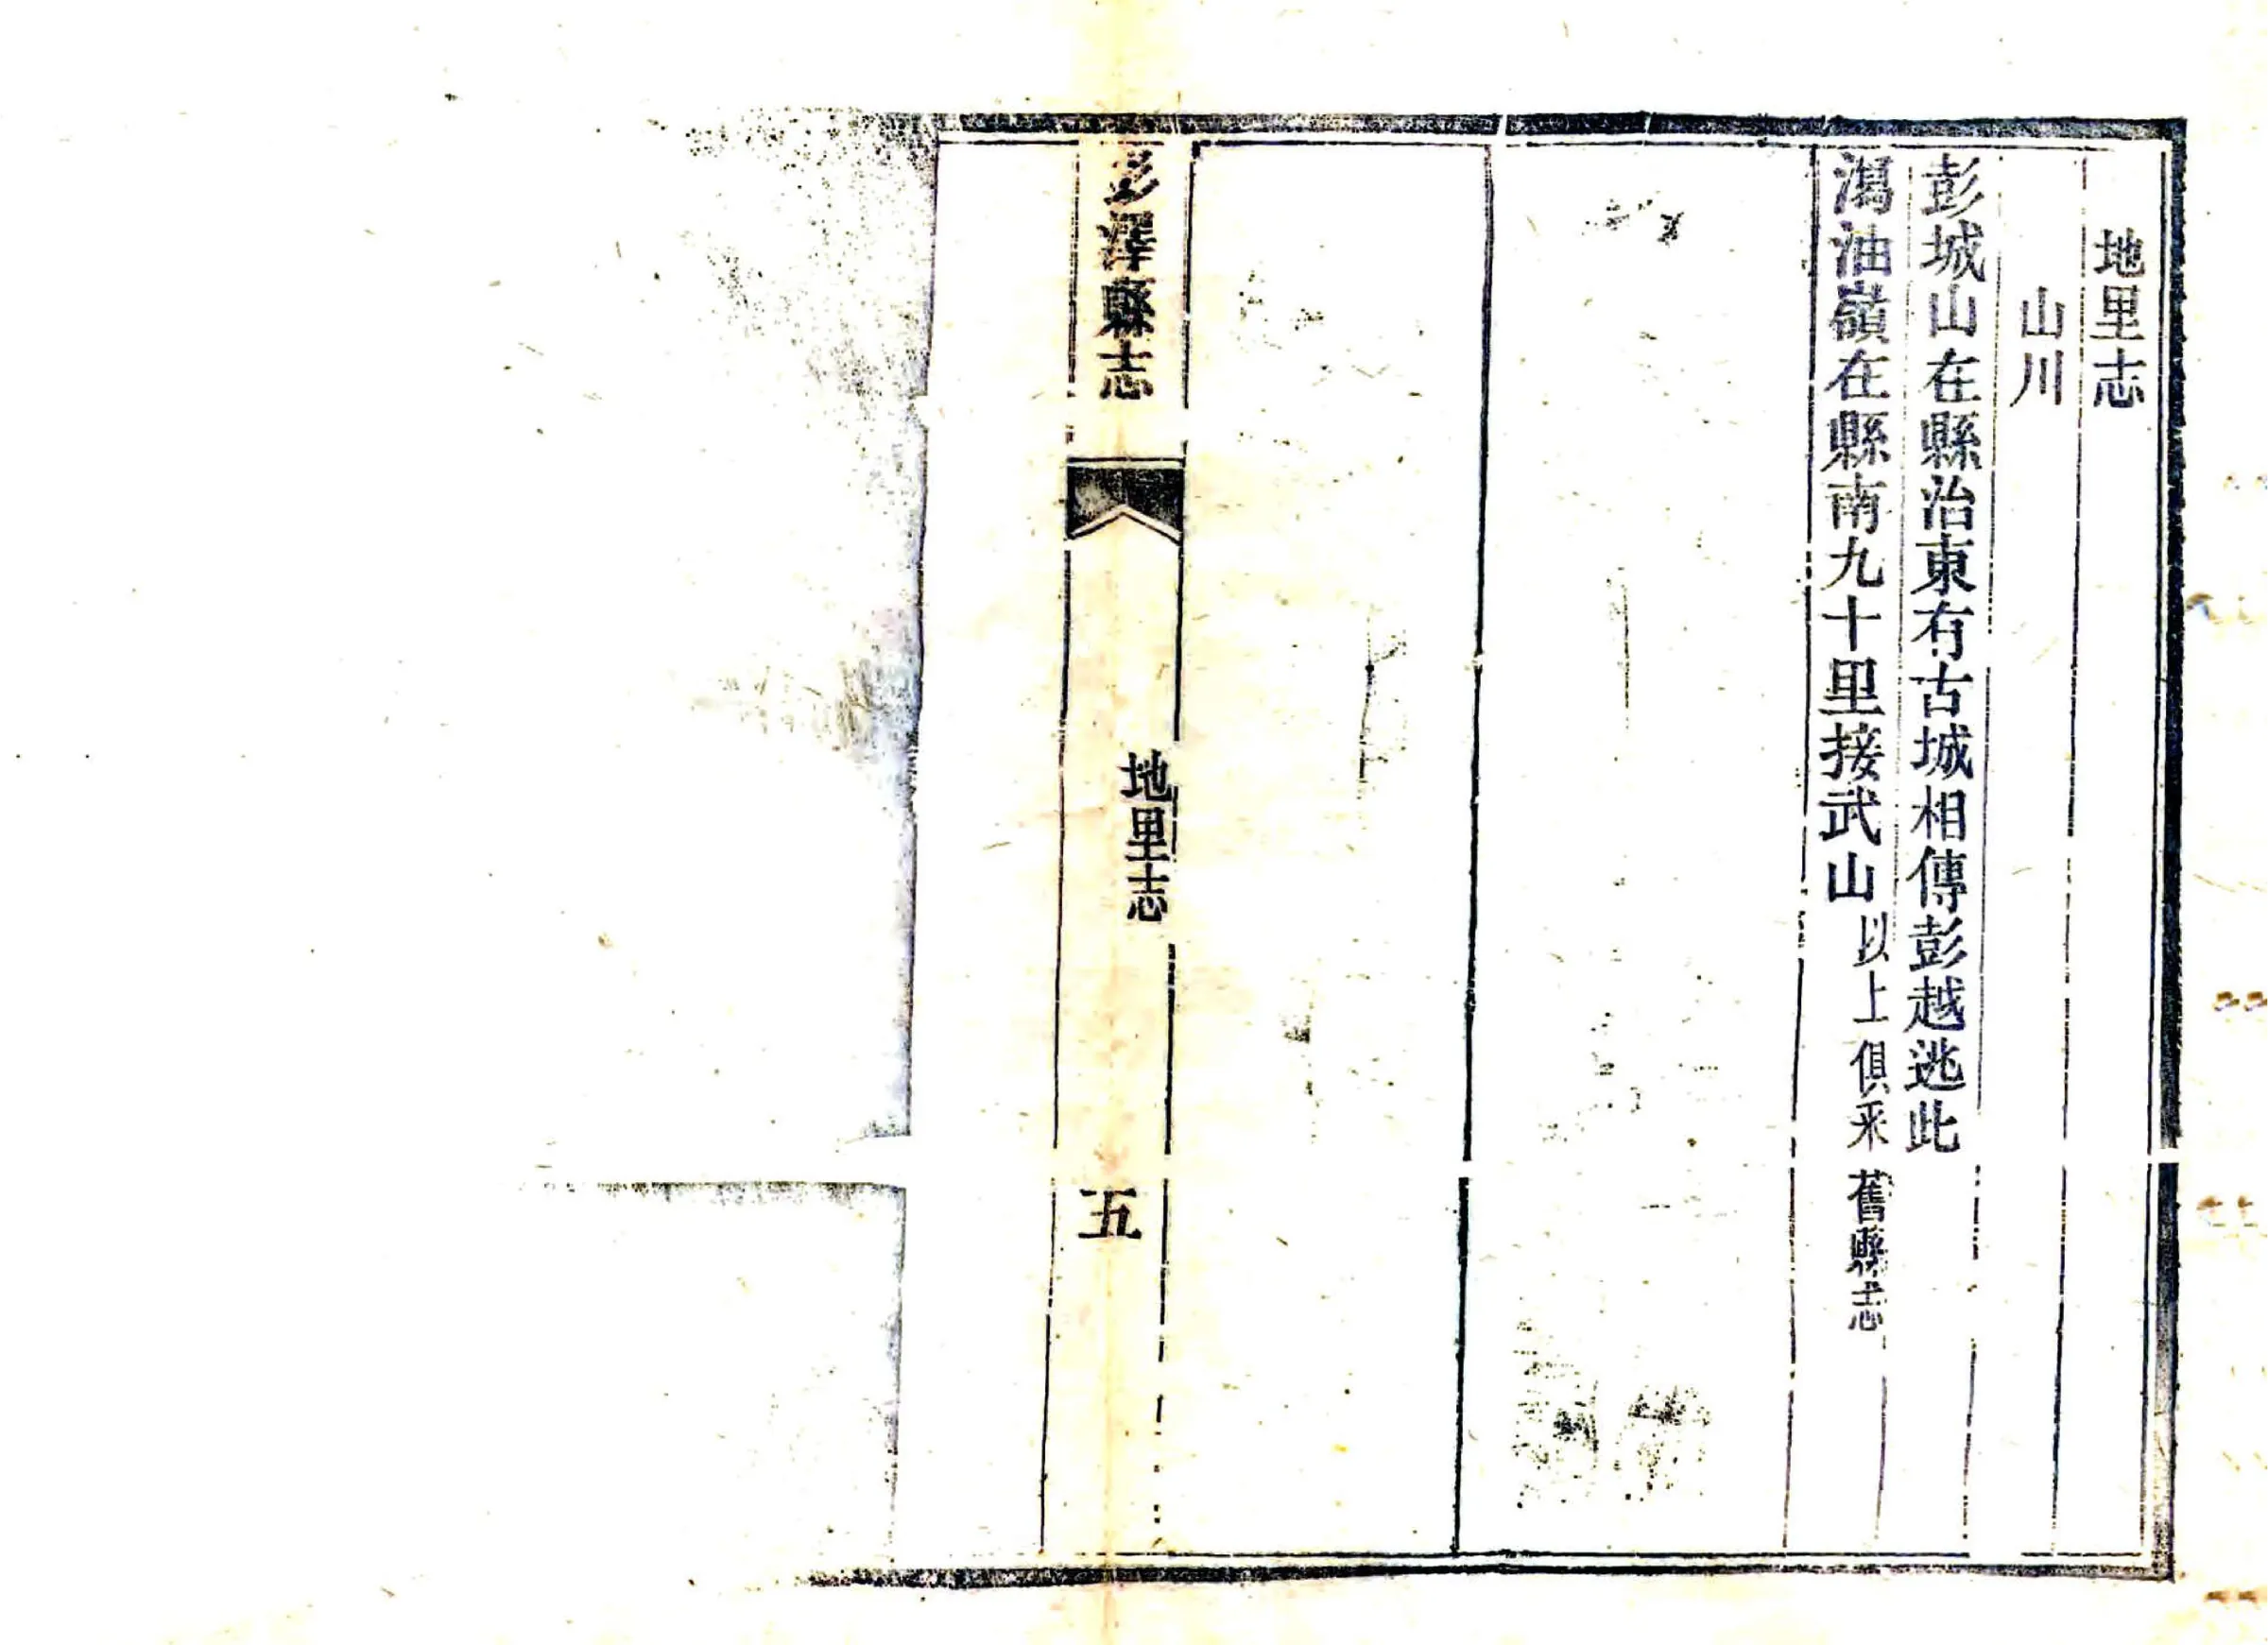 地里志
山川
彭城山在縣治東有古城相傳彭越逃此
瀉油嶺在縣南九十里接武山以上俱采舊縣志
彭澤縣志
地里志
五